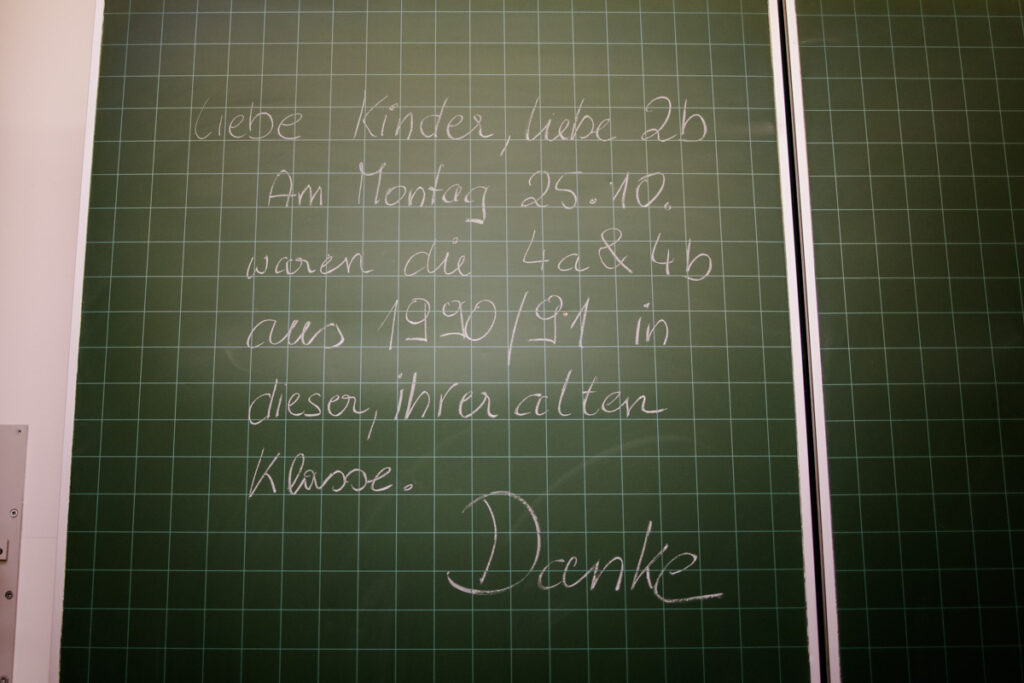 Liebe Kinder, liebe 2b
Am Montag 25.10.
waren die 4a & 4b
aus 1990/91 in
dieser, ihrer alten
Klasse.
Danke